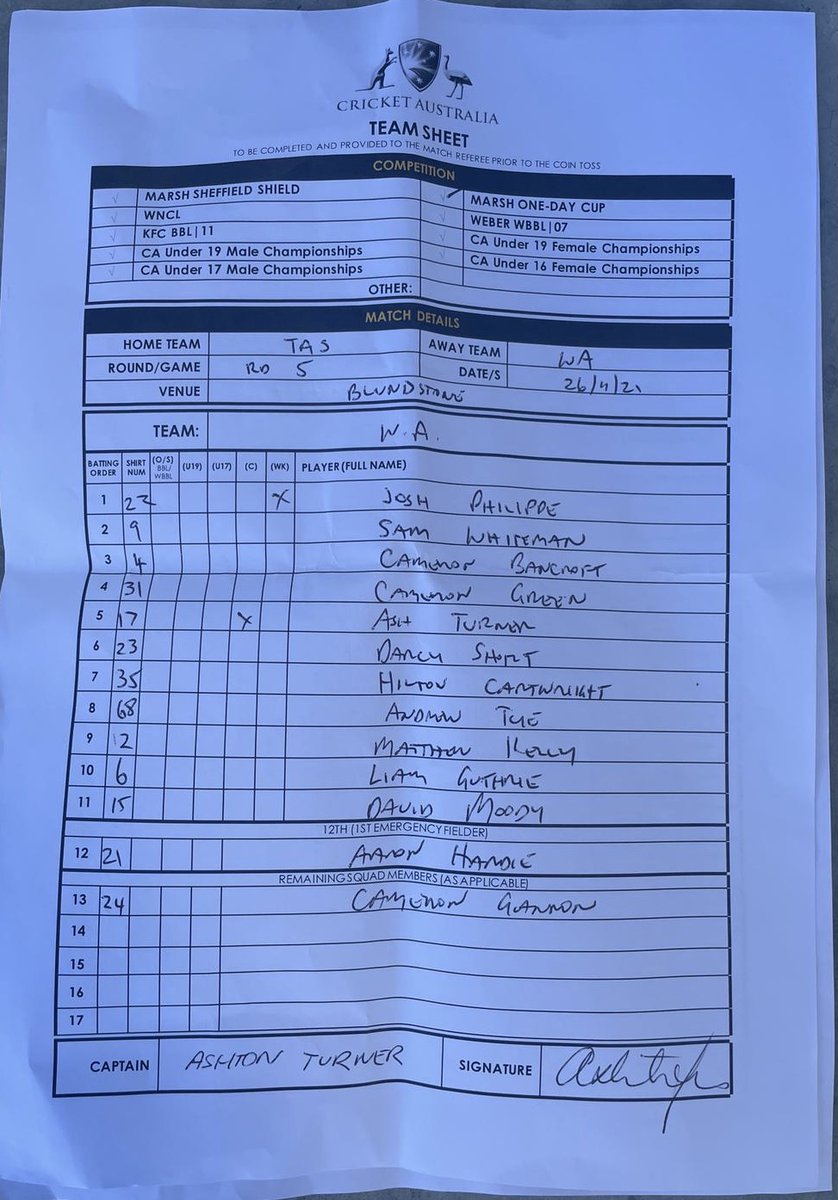 CRICKET AUSTRALIA
TEAM SHEET
TO BE COMPLETED AND PROVIDED TO THE MATCH REFEREE PRIOR TO THE COIN TOSS
COMPETITION
✓ MARSH SHEFFIELD SHIELD ✓ MARSH ONE-DAY CUP
✓ WNCL ✓ WEBER WBBL|07
✓ KFC BBL|11 ✓ CA Under 19 Female Championships
✓ CA Under 19 Male Championships ✓ CA Under 16 Female Championships
✓ CA Under 17 Male Championships
OTHER:
MATCH DETAILS
HOME TEAM TAS AWAY TEAM WA
ROUND/GAME RD 5 DATE/S 26/11/21
VENUE BLUNDSTONE
TEAM: W.A.
BATTING ORDER SHIRT NUM (O/S) BBL/WBBL (U19) (U17) (C) (WK) PLAYER (FULL NAME)
1 22 X JOSH PHILIPPE
2 9 SAM WHITEMAN
3 4 CAMERON BANCROFT
4 31 CAMERON GREEN
5 17 X ASH TURNER
6 23 DARCY SHORT
7 35 HILTON CARTWRIGHT
8 68 ANDREW TYE
9 12 MATTHEW KELLY
10 6 LIAM GUTHRIE
11 15 DAVID MOODY
12TH (1ST EMERGENCY FIELDER)
12 21 AARON HARDIE
REMAINING SQUAD MEMBERS (AS APPLICABLE)
13 24 CAMERON GANNON
14
15
16
17
CAPTAIN ASHTON TURNER SIGNATURE